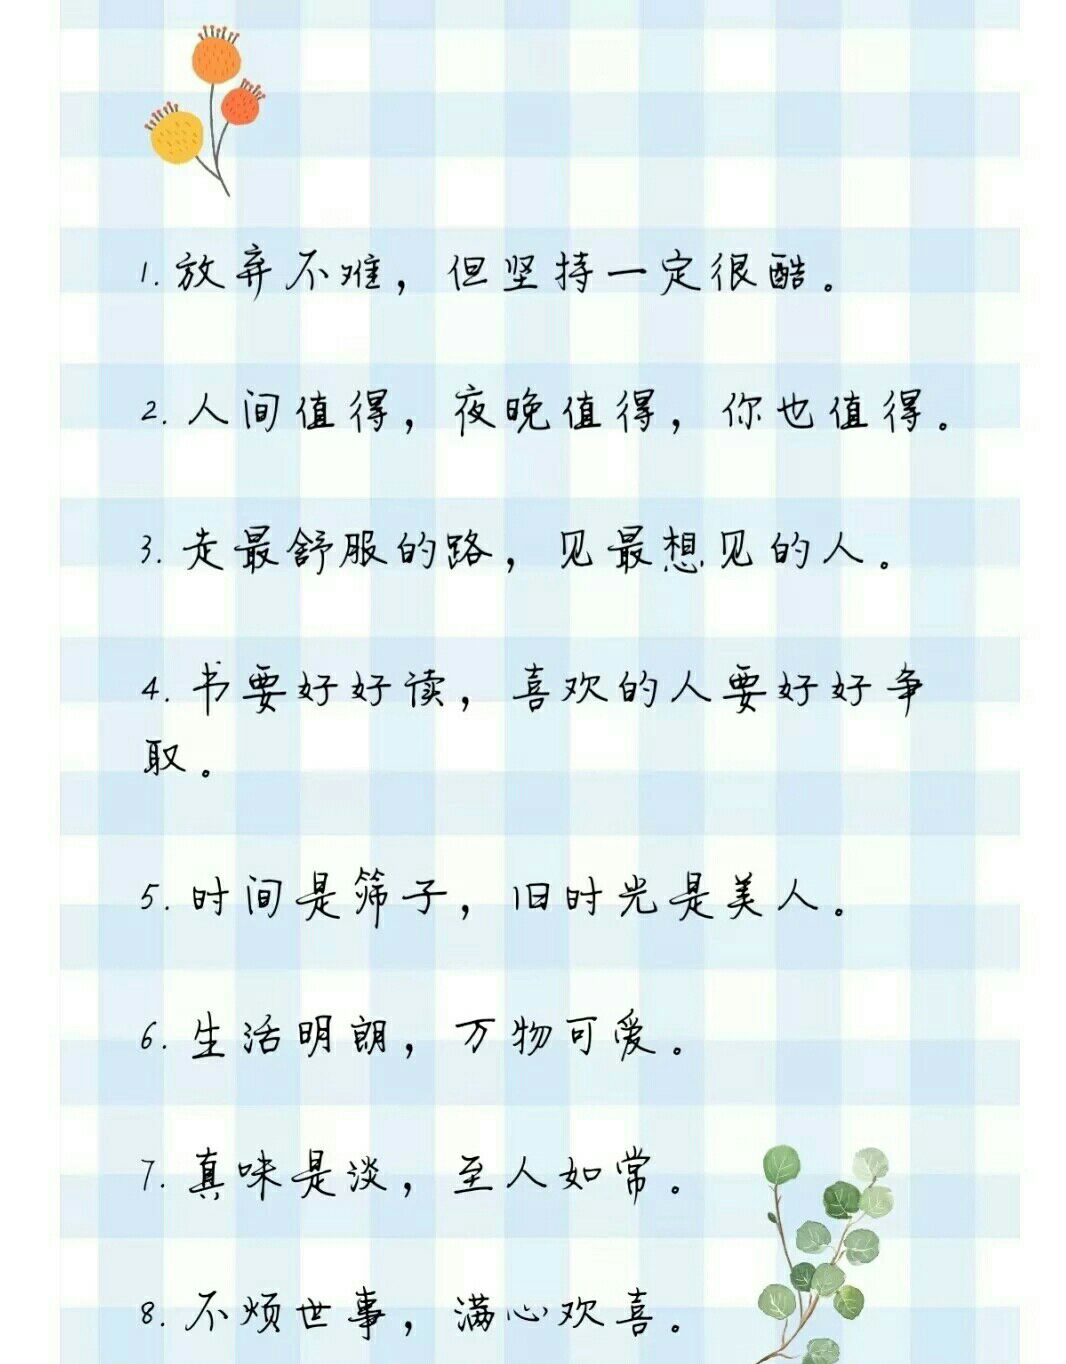 1. 放弃不难，但坚持一定很酷。
2. 人间值得，夜晚值得，你也值得。
3. 走最舒服的路，见最想见的人。
4. 书要好好读，喜欢的人要好好争
取。
5. 时间是筛子，旧时光是美人。
6. 生活明朗，万物可爱。
7. 真味是淡，至人如常。
8. 不烦世事，满心欢喜。